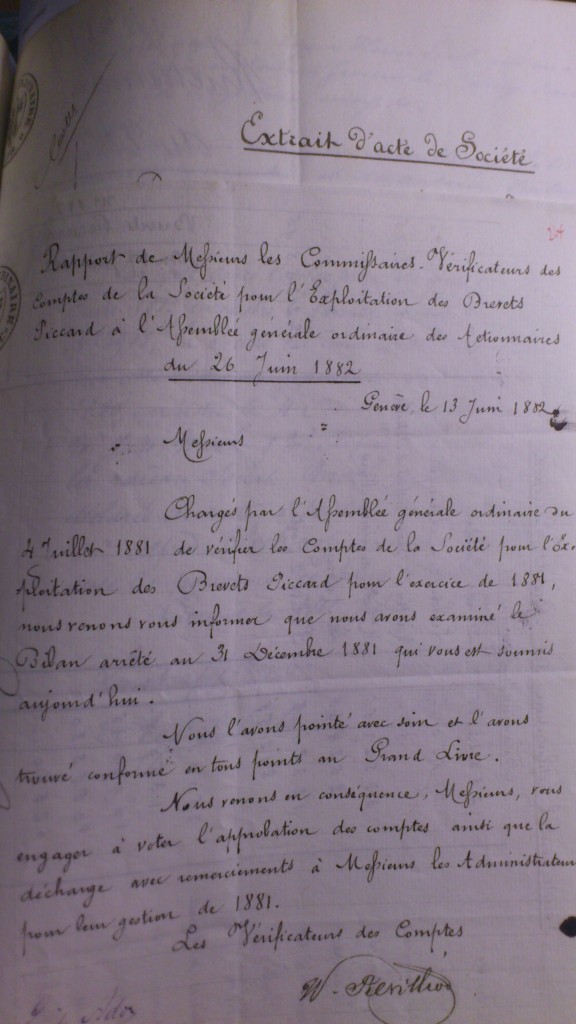 Extrait d'acte de Société
Rapport de Messieurs les Commissaires-Vérificateurs des
Comptes de la Société pour l'Exploitation des Brevets
Piccard à l'Assemblée générale ordinaire des Actionnaires
du 26 Juin 1882
Genève, le 13 Juin 1882
Messieurs
Chargés par l'Assemblée générale ordinaire du
4 Juillet 1881 de vérifier les Comptes de la Société pour l'Ex-
ploitation des Brevets Piccard pour l'exercice de 1881,
nous venons vous informer que nous avons examiné le
Bilan arrêté au 31 Décembre 1881 qui vous est soumis
aujourd'hui.
Nous l'avons pointé avec soin et l'avons
trouvé conforme en tous points au Grand Livre.
Nous venons en conséquence, Messieurs, vous
engager à voter l'approbation des comptes ainsi que la
décharge avec remerciements à Messieurs les Administrateurs
pour leur gestion de 1881.
Les Vérificateurs des Comptes
W. Revilliod